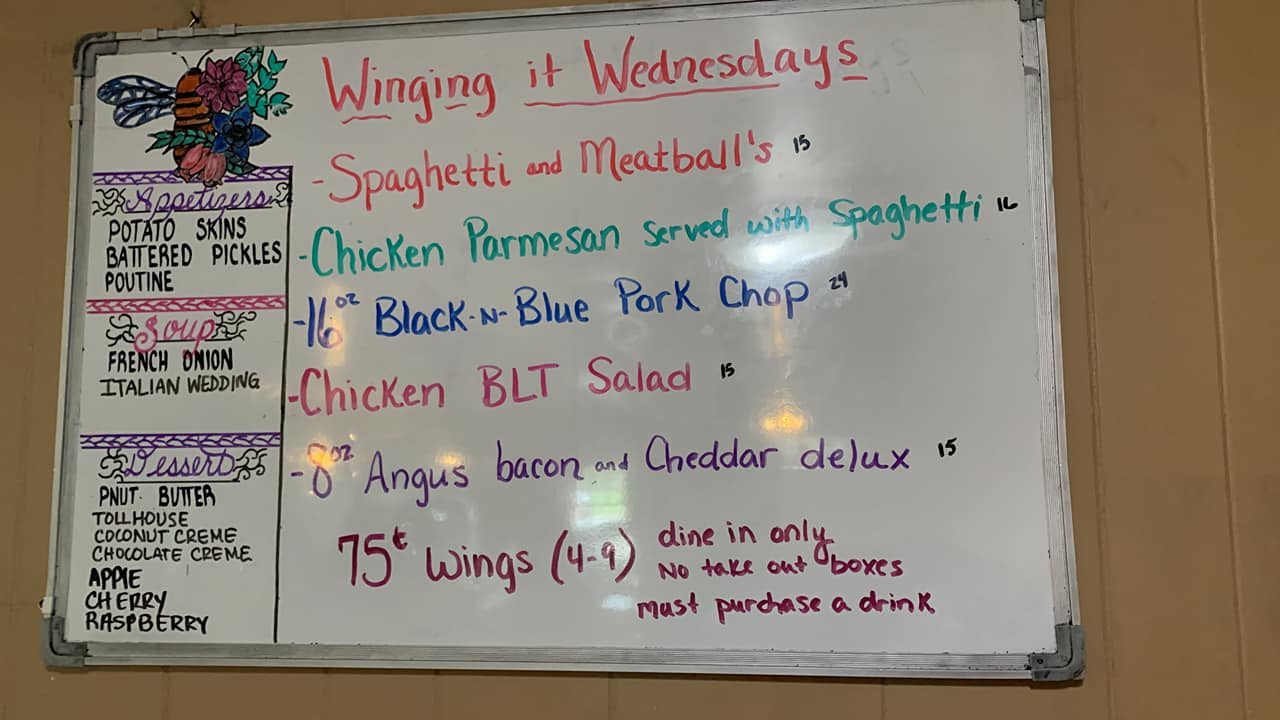 Winging it Wednesdays
Appetizers
POTATO SKINS
BATTERED PICKLES
POUTINE
Soup
FRENCH ONION
ITALIAN WEDDING
Dessert
PNUT BUTTER
TOLLHOUSE
COCONUT CREME
CHOCOLATE CREME
APPIE
CHERRY
RASPBERRY
-Spaghetti and Meatball's 15
-Chicken Parmesan served with Spaghetti 16
-16oz Black-N-Blue Pork Chop 24
-Chicken BLT Salad 15
-8oz Angus bacon and Cheddar delux 15
75¢ Wings (4-9)
dine in only
No take out boxes
must purchase a drink